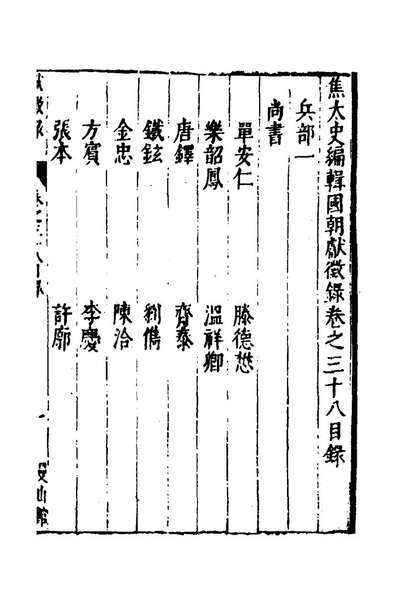 焦太史編輯國朝獻徵錄卷之三十八目錄
兵部一
尚書
單安仁　滕德懋
樂韶鳳　溫祥卿
唐鐸　齊泰
鐵鉉　劉儁
金忠　陳洽
方賓　李慶
張本　許廓